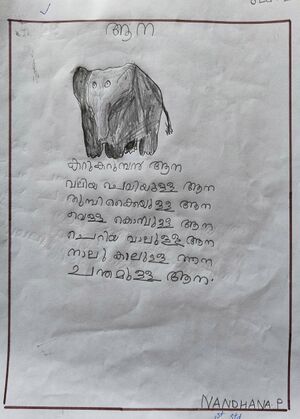 ആന
കറുകറുമ്പൻ ആന
വലിയ ചെവിയുള്ള ആന
തുമ്പിക്കൈയുള്ള ആന
വെള്ള കൊമ്പുള്ള ആന
ചെറിയ വാലുള്ള ആന
നാലു കാലുള്ള ആന
ചന്തമുള്ള ആന.
NANDHANA P
1st std